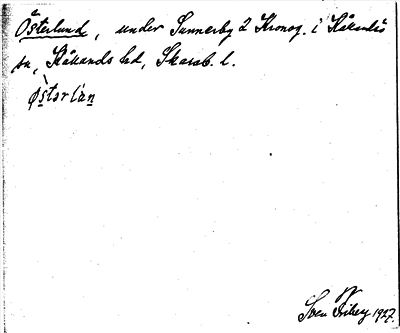 Österlund, under Sunnerby 2 Kronog. i Råckeby
sn, Kållands hd, Skarab. l.
østərlan
Sven Friberg 1927.